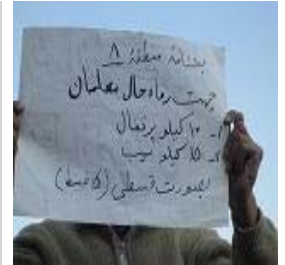 بخشنامه منطقه ۸
جهت رفاه حال معلمان
۱ـ ۱۰ کیلو پرتقال
۲ـ ۱۵ کیلو سیب
بصورت قسطی (۵ قسط)